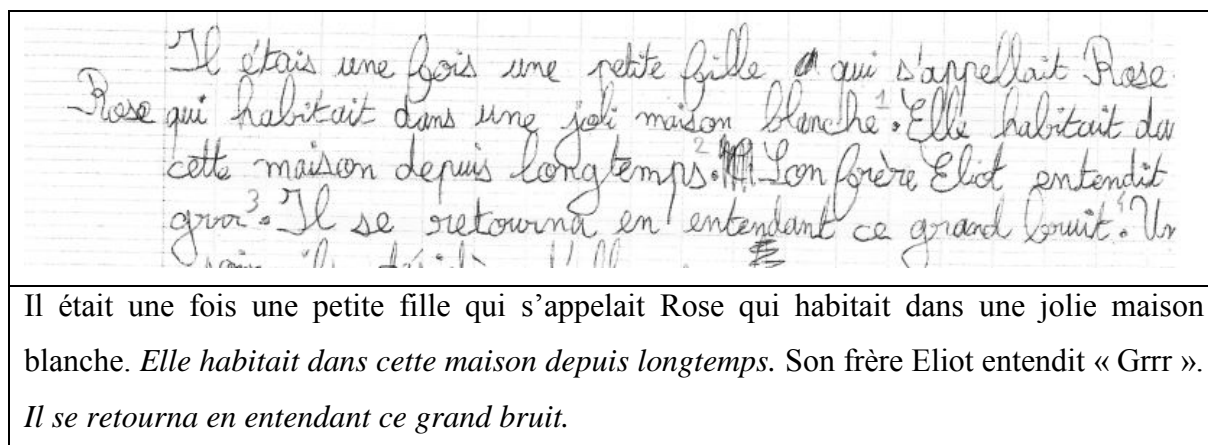 Il étais une fois une petite fille qui s'appellait Rose
Rose qui habitait dans une joli maison blanche.1 Elle habitait da
cette maison depuis longtemps.2 Son frère Eliot entendit
grrr3. Il se retourna en entendant ce grand bruit.4 Un
Il était une fois une petite fille qui s'appelait Rose qui habitait dans une jolie maison
blanche. Elle habitait dans cette maison depuis longtemps. Son frère Eliot entendit « Grrr ».
Il se retourna en entendant ce grand bruit.